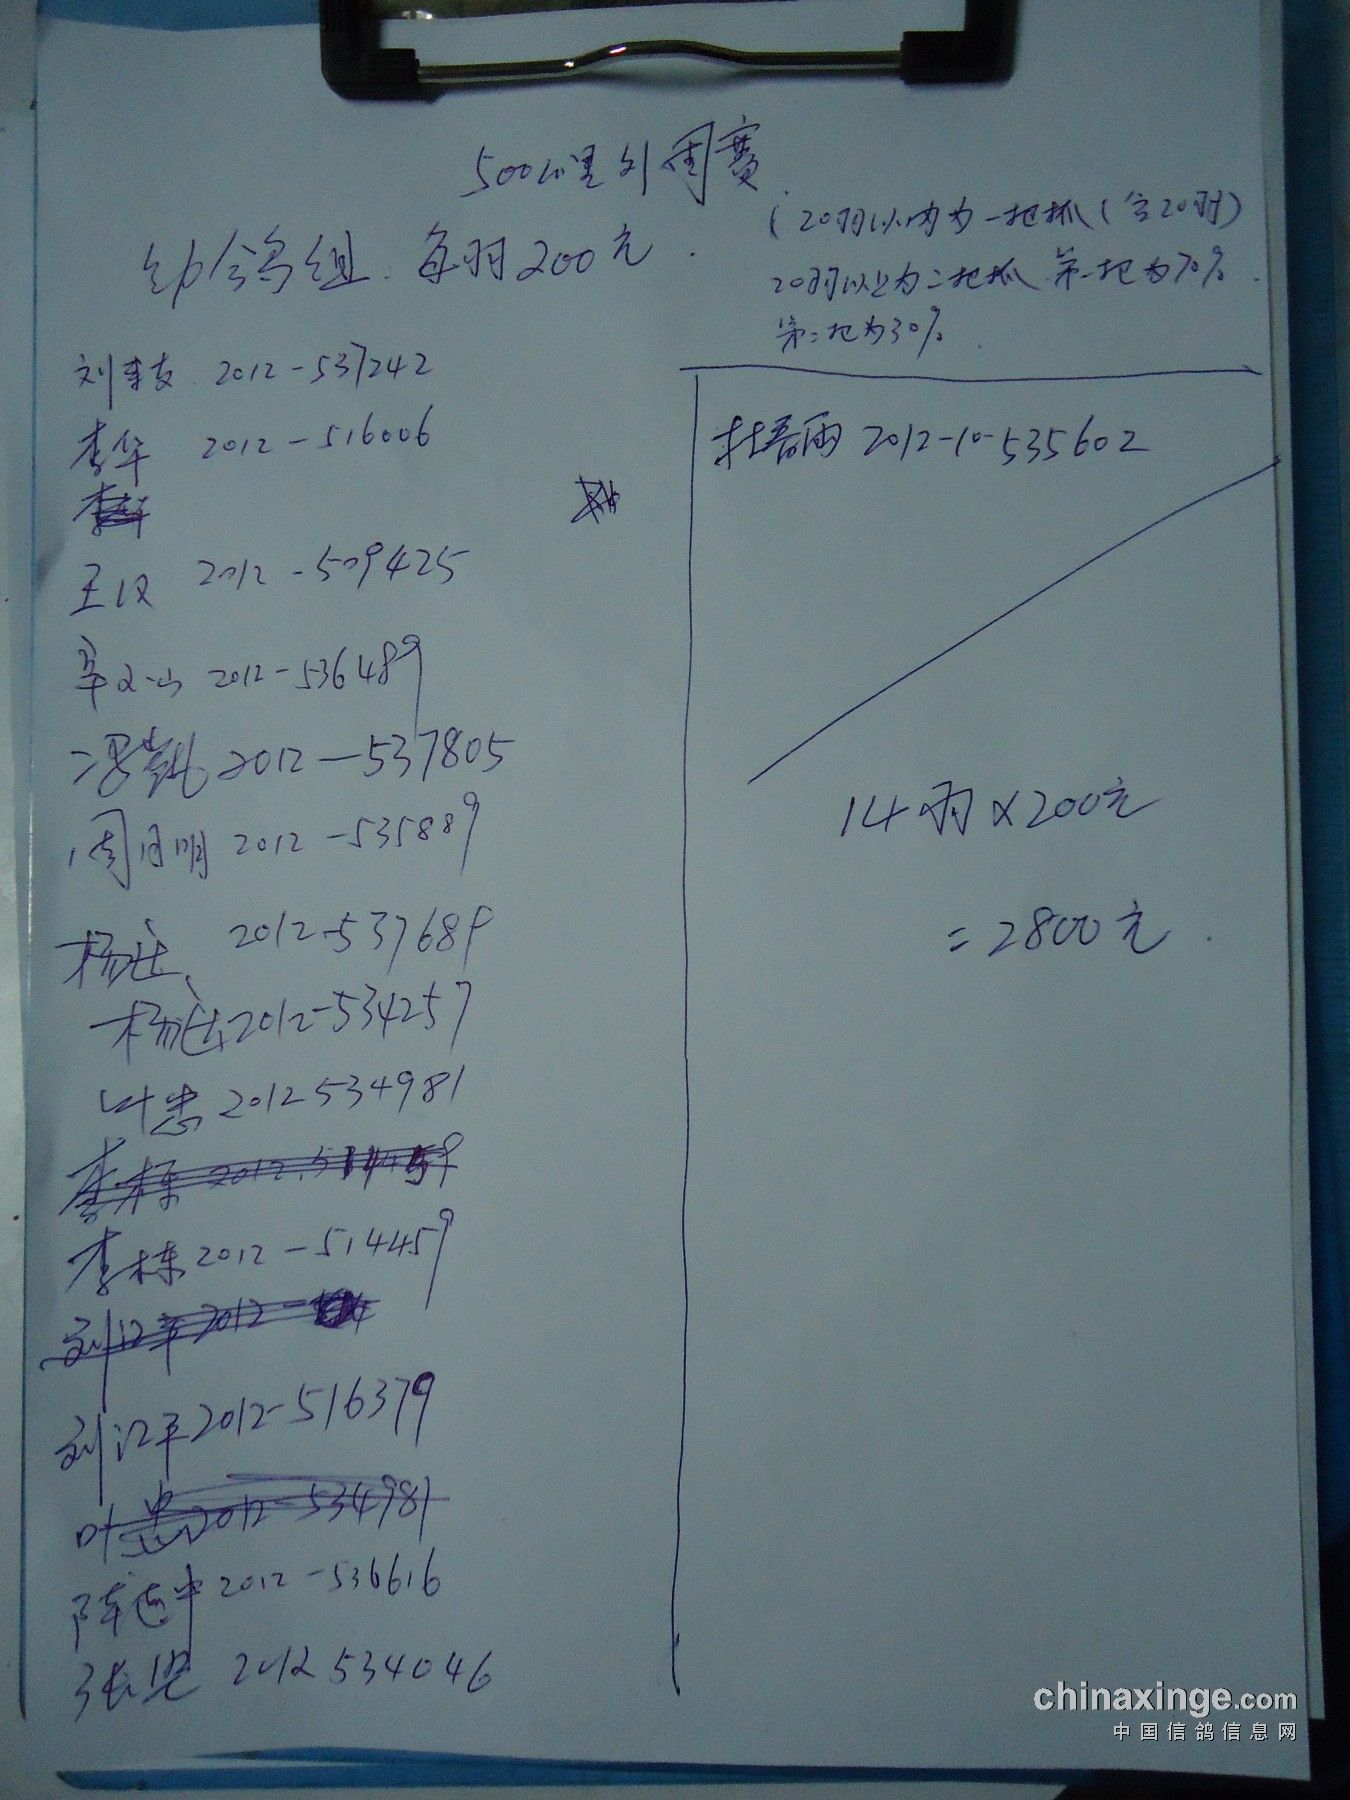 500公里外围赛
幼鸽组. 每羽200元.
(20羽以内为一把抓(含20羽)
20羽以上为二把抓 第一把为70%.
第二把为30%.
刘 2012-537242
李华 2012-516006
王汉 2012-509425
文山 2012-536489
冯凯 2012-537805
周月明 2012-535889
杨 2012-537689
杨 2012-534257
叶忠 2012534981
李栋 2012-514459
刘江平 2012-516379
叶忠 2012-534981
陈志中 2012-536616
张 2012534046
杜春雨 2012-10-535602
14羽×200元
=2800元.
chinaxinge.com
中国信鸽信息网